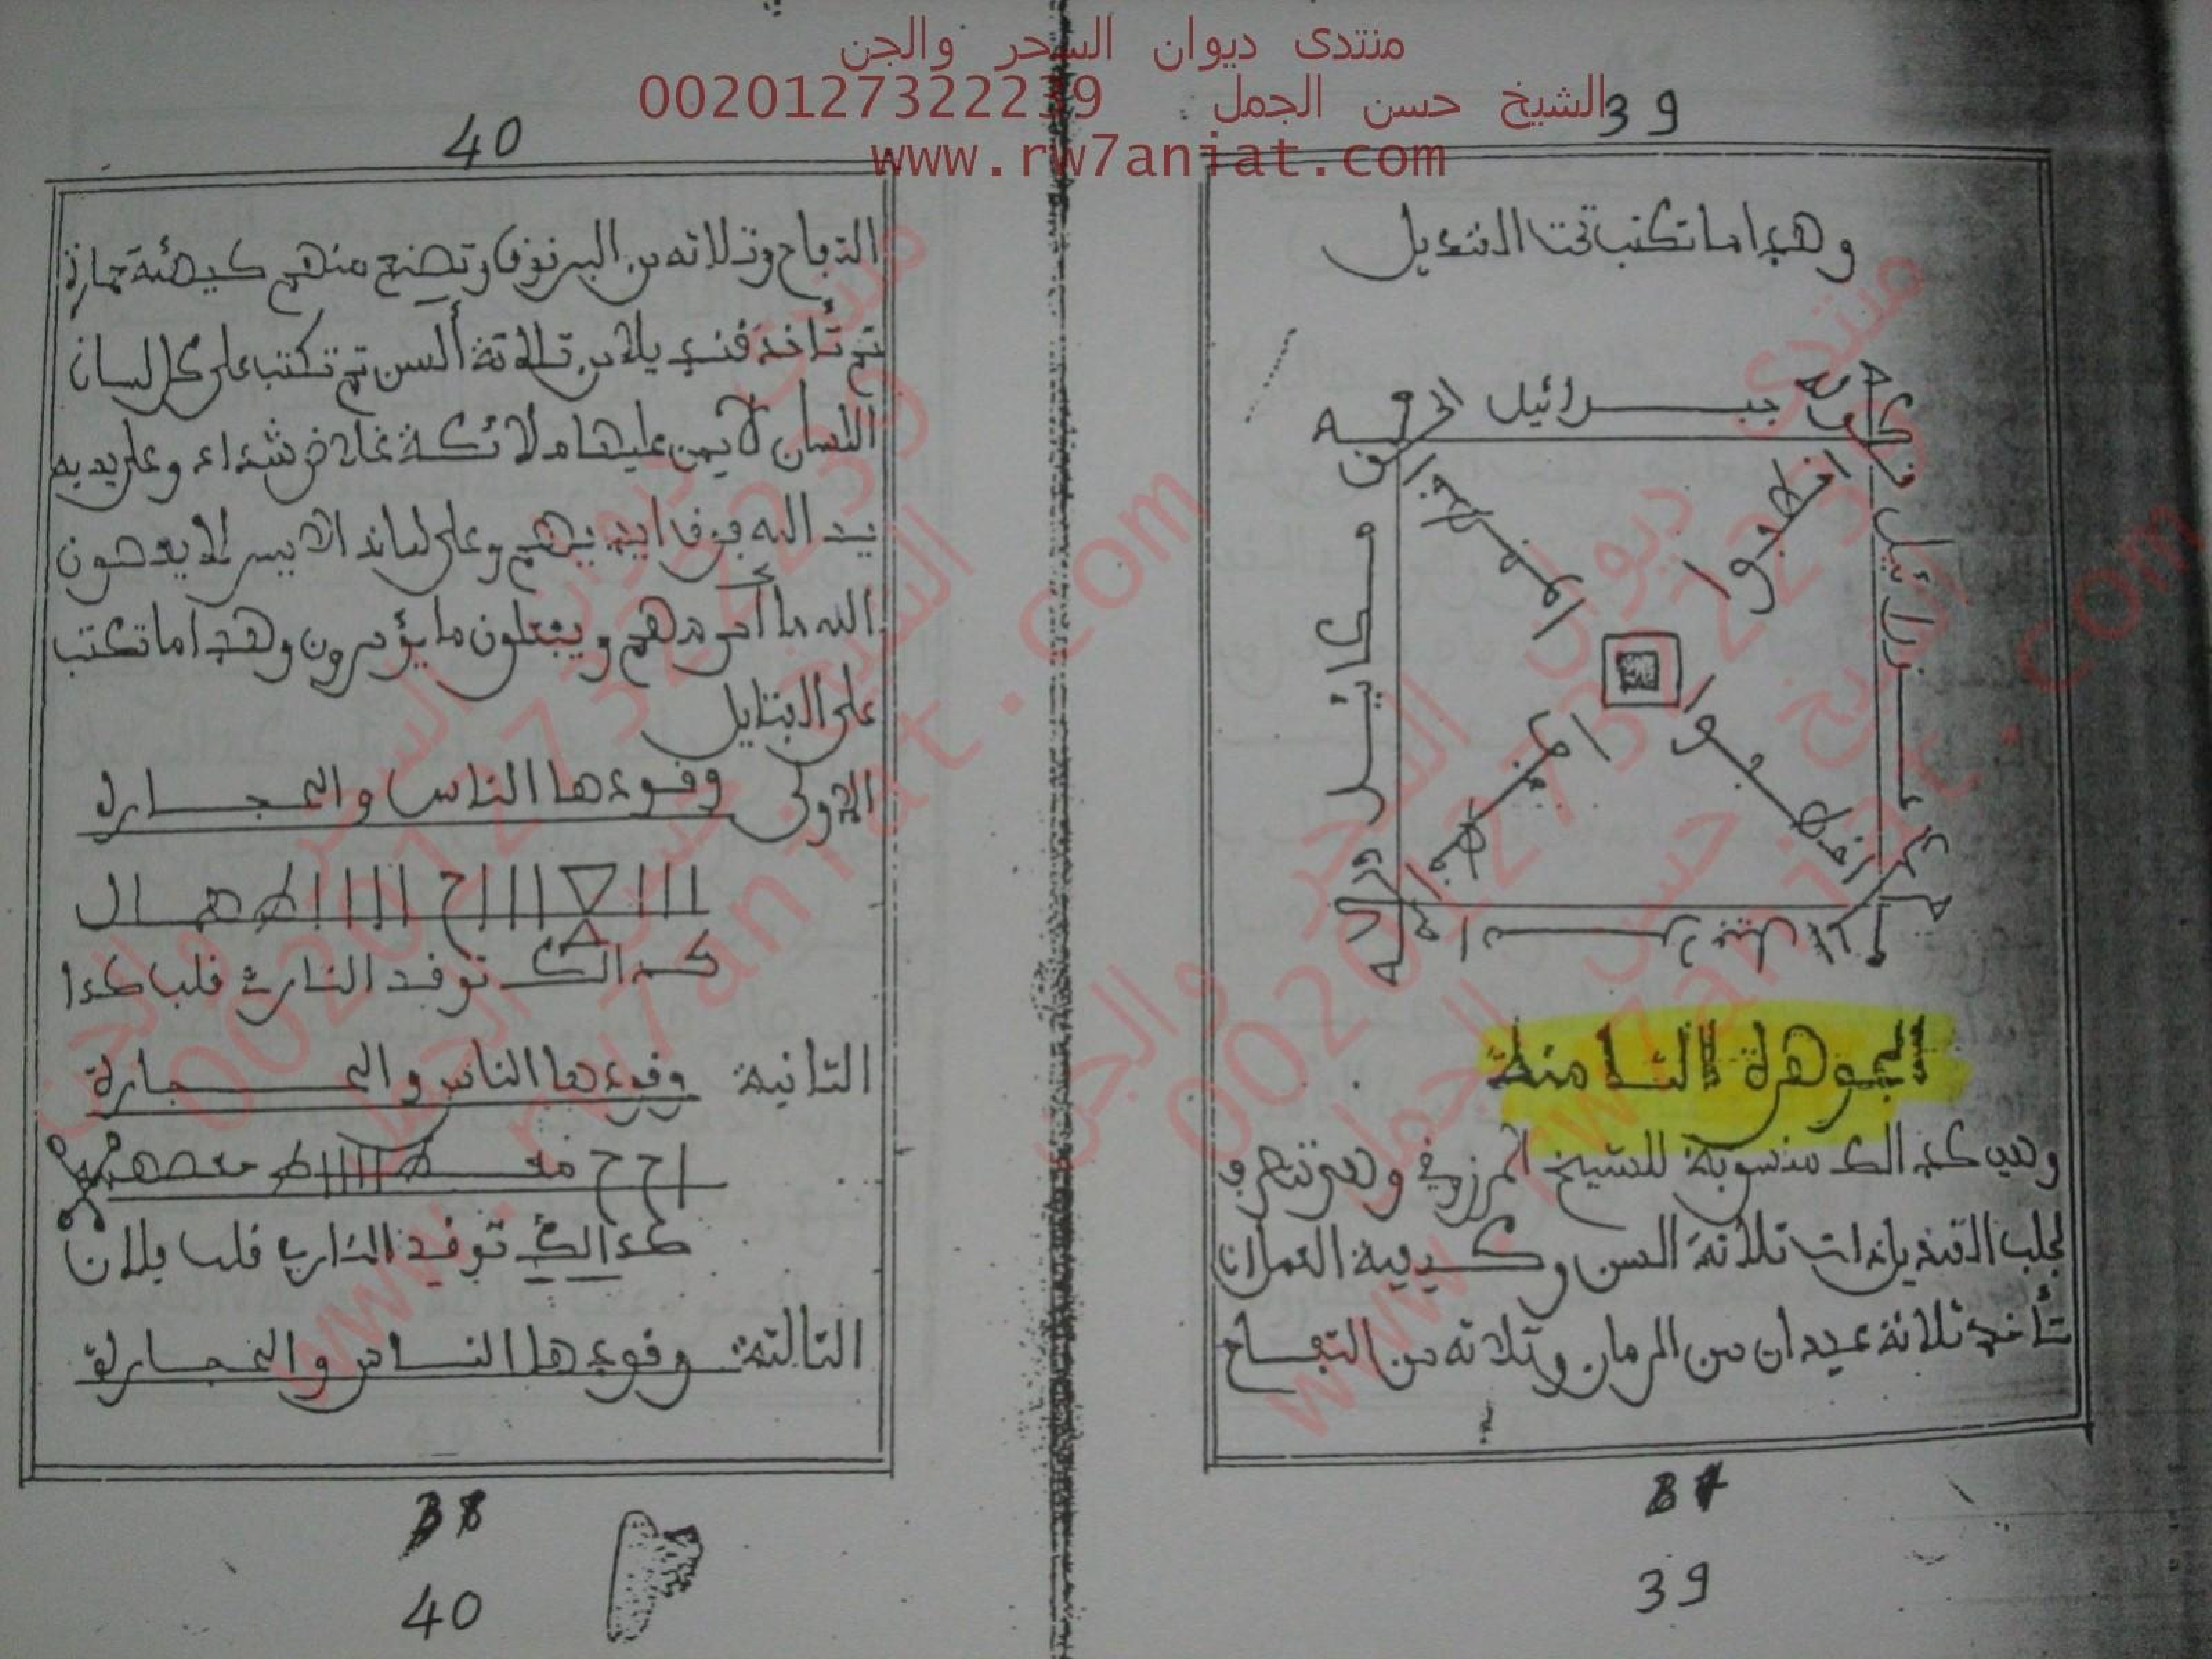 منتدى ديوان السحر والجن
الشيخ حسن الجمل 0020127322239
www.rw7aniat.com
39
وهدا ما تكتب تحت القنديل
جبرائيل
عزرائيل
ميكائيل
احضروا
الجوهرة الثامنة
وهي كدالك منسوبة للشيخ المرزوقي وهي تتصرف
لجلب القنديل ذات ثلاثة السن وكيفية العملان
تأخد ثلاثة عيدان من الرمان وثلاثة من التفاح
37
39
40
التفاح وثلاثه من البرقوق وتضع منهم كيهئة حمارة
تم تأخد قنديلا من ثلاثة ألسن تم تكتب على كل لسان
اللسان لايمن عليها ملائكة غلاض شداد وعلى يديه
يد الله فوق ايديهم وعلى لسانه الايسر لا يعصون
الله ما أمرهم ويفعلون ما يؤمرون وهدا ما تكتب
على الفتايل
الاولى وقودها الناس والحجارة
كدالك توقد النار في قلب كدا
الثانية وقودها الناس والحجارة
كدالك توقد النار في قلب فلان
التالتة وقودها الناس والحجارة
38
40